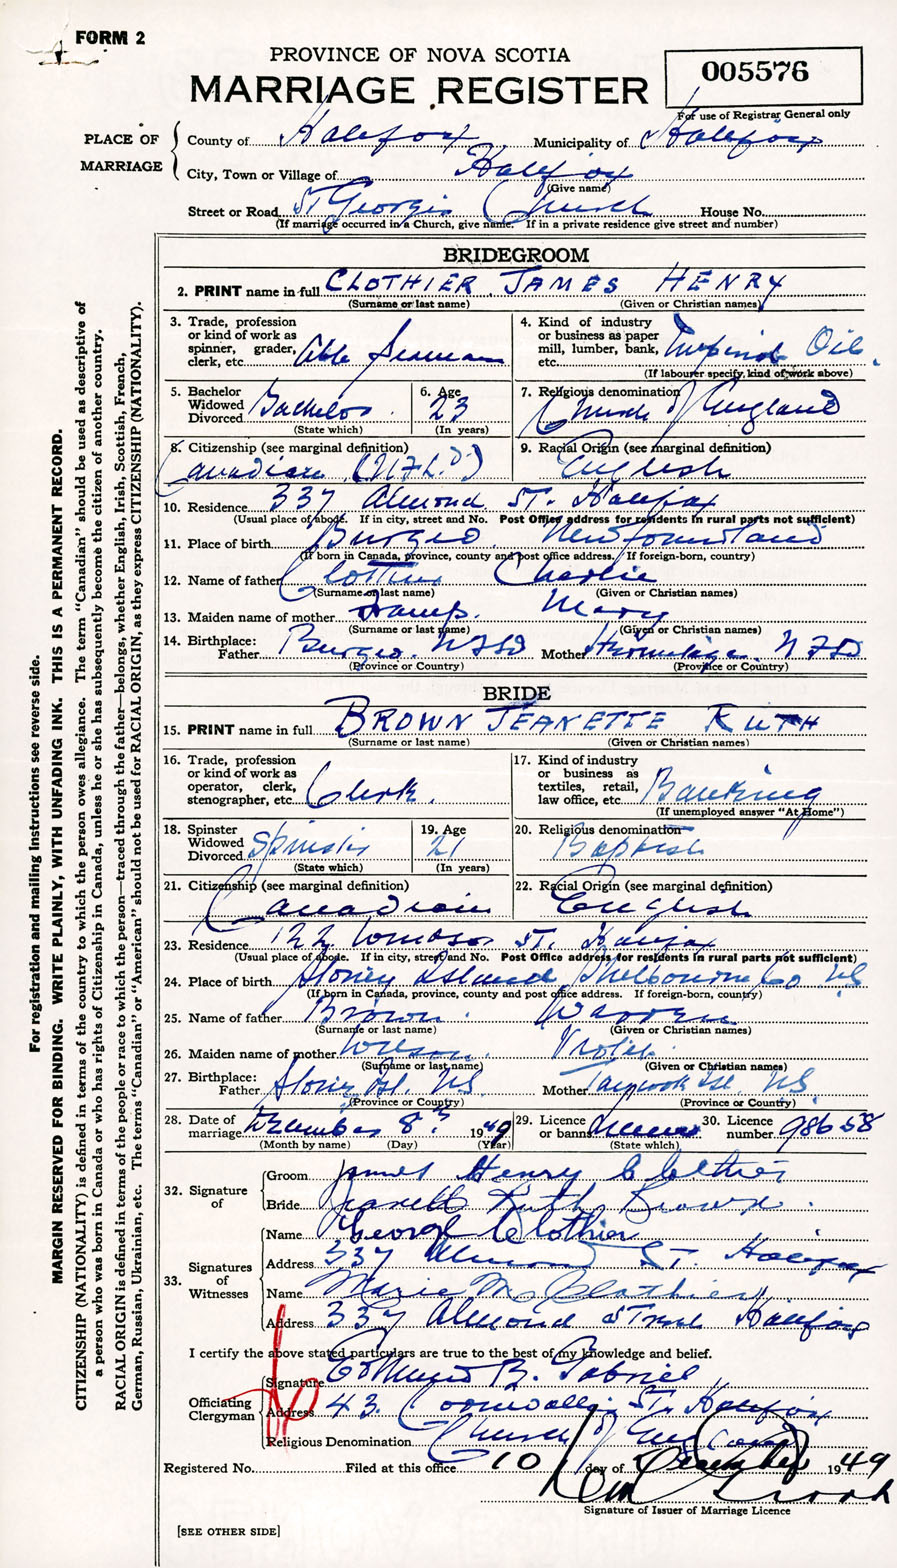 FORM 2
PROVINCE OF NOVA SCOTIA
MARRIAGE REGISTER
005576
For use of Registrar General only
PLACE OF MARRIAGE
County of Halifax Municipality of Halifax
City, Town or Village of Halifax
(Give name)
Street or Road St Georges Church House No.
(If marriage occurred in a Church, give name. If in a private residence give street and number)
BRIDEGROOM
2. PRINT name in full CLOTHIER JAMES HENRY
(Surname or last name) (Given or Christian names)
3. Trade, profession or kind of work as spinner, grader, clerk, etc. Able Seaman
4. Kind of industry or business as paper mill, lumber, bank, etc. Imperial Oil.
(If labourer specify kind of work above)
5. Bachelor Widowed Divorced Bachelor
(State which)
6. Age 23
(In years)
7. Religious denomination Church of England
8. Citizenship (see marginal definition) Canadian (NFLD)
9. Racial Origin (see marginal definition) English
10. Residence 337 Almond St. Halifax
(Usual place of abode. If in city, street and No. Post Office address for residents in rural parts not sufficient)
11. Place of birth Burgeo Newfoundland
(If born in Canada, province, county and post office address. If foreign-born, country)
12. Name of father Clothier Charlie
(Surname or last name) (Given or Christian names)
13. Maiden name of mother Mary
(Surname or last name) (Given or Christian names)
14. Birthplace: Father Burgeo NFLD Mother Hermitage NFLD
(Province or Country) (Province or Country)
BRIDE
15. PRINT name in full BROWN JEANETTE RUTH
(Surname or last name) (Given or Christian names)
16. Trade, profession or kind of work as operator, clerk, stenographer, etc. Clerk.
17. Kind of industry or business as textiles, retail, law office, etc. Banking
(If unemployed answer "At Home")
18. Spinster Widowed Divorced Spinster
(State which)
19. Age 21
(In years)
20. Religious denomination Baptist
21. Citizenship (see marginal definition) Canadian
22. Racial Origin (see marginal definition) English
23. Residence 122 St. Halifax
(Usual place of abode. If in city, street and No. Post Office address for residents in rural parts not sufficient)
24. Place of birth Stoney Island Shelbourne Co NS
(If born in Canada, province, county and post office address. If foreign-born, country)
25. Name of father Brown Warren
(Surname or last name) (Given or Christian names)
26. Maiden name of mother
(Surname or last name) (Given or Christian names)
27. Birthplace: Father Stoney Isl. NS Mother Isl. NS
(Province or Country) (Province or Country)
28. Date of marriage December 8th 1949
(Month by name) (Day) (Year)
29. Licence or banns
(State which)
30. Licence number 98658
32. Signature of
Groom James Henry Clothier
Bride Jeanette Ruth Brown
33. Signatures of Witnesses
Name George Clothier
Address 337 Almond St. Halifax
Name Marie M. Clothier
Address 337 Almond Street Halifax
I certify the above stated particulars are true to the best of my knowledge and belief.
Officiating Clergyman
Signature Edmund B. Gabriel
Address 43 Cornwallis St. Halifax
Religious Denomination Church of England
Registered No. Filed at this office 10 day of December 1949
Signature of Issuer of Marriage Licence
[SEE OTHER SIDE]
For registration and mailing instructions see reverse side.
MARGIN RESERVED FOR BINDING. WRITE PLAINLY, WITH UNFADING INK. THIS IS A PERMANENT RECORD.
CITIZENSHIP (NATIONALITY) is defined in terms of the country to which the person owes allegiance. The term "Canadian" should be used as descriptive of
a person who was born in Canada or who has rights of Citizenship in Canada, unless he or she has subsequently become the citizen of another country.
RACIAL ORIGIN is defined in terms of the people or race to which the person—traced through the father—belongs, whether English, Irish, Scottish, French,
German, Russian, Ukrainian, etc. The terms "Canadian" or "American" should not be used for RACIAL ORIGIN, as they express CITIZENSHIP (NATIONALITY).